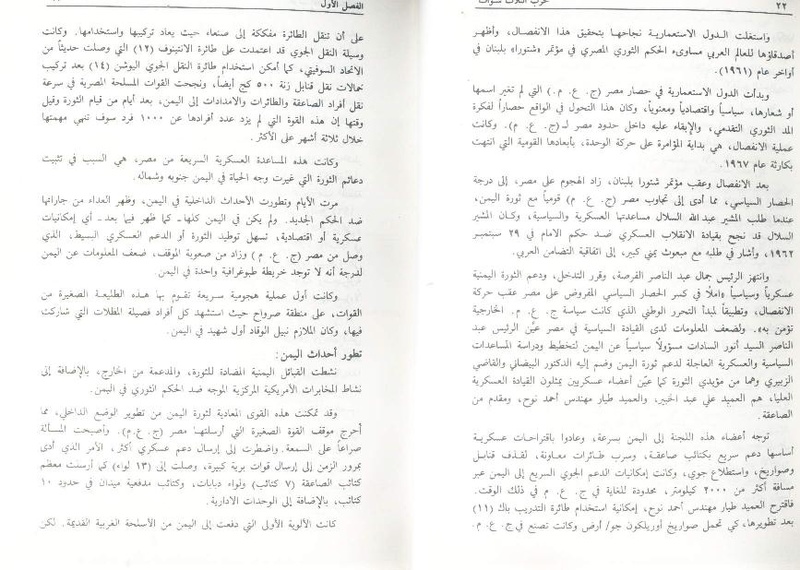 ٢٢
حرب الثلاث سنوات
واستغلت الدول الاستعمارية نجاحها بتحقيق هذا الانفصال، وأظهر
أصدقاؤها للعالم العربي مساوىء الحكم الثوري المصري في مؤتمر «شتورا» بلبنان في
أواخر عام (١٩٦١).
وبدأت الدول الاستعمارية في حصار مصر (ج. ع. م.) التي لم تغير اسمها
أو شعارها، سياسياً واقتصادياً ومعنوياً، وكان هذا التحول في الواقع حصاراً لفكرة
المد الثوري التقدمي، والإبقاء عليه داخل حدود مصر لـ (ج. ع. م). وكانت
عملية الانفصال، هي بداية المؤامرة على حركة الوحدة، بأبعادها القومية التي انتهت
بكارثة عام ١٩٦٧.
بعد الانفصال وعقب مؤتمر شتورا بلبنان، زاد الهجوم على مصر، إلى درجة
الحصار السياسي، مما أدى إلى تجاوب مصر (ج. ع. م) قومياً مع ثورة اليمن،
عندما طلب المشير عبد الله السلال مساعدتها العسكرية والسياسية، وكان المشير
السلال قد نجح بقيادة الانقلاب العسكري ضد حكم الامام في ٢٩ سبتمبر
١٩٦٢، وأشار في طلبه مع مبعوث يمني كبير، إلى اتفاقية التضامن العربي.
وانتهز الرئيس جمال عبد الناصر الفرصة، وقرر التدخل، ودعم الثورة اليمنية
عسكرياً وسياسياً «املاً في كسر الحصار السياسي المفروض على مصر عقب حركة
الانفصال، وتطبيقاً لمبدأ التحرر الوطني الذي كانت سياسة ج. ع. م. الخارجية
تؤمن به». ولضعف المعلومات لدى القيادة السياسية في مصر عيّن الرئيس عبد
الناصر السيد أنور السادات مسؤولاً سياسياً عن اليمن لتخطيط ودراسة المساعدات
السياسية والعسكرية العاجلة لدعم ثورة اليمن وضم إليه الدكتور البيضاني والقاضي
الزبيري وهما من مؤيدي الثورة كما عيّن أعضاء عسكريين يمثلون القيادة العسكرية
العليا، هم العميد علي عبد الخبير، والعميد طيار مهندس أحمد نوح، ومقدم من
الصاعقة.
توجه أعضاء هذه اللجنة إلى اليمن بسرعة، وعادوا باقتراحات عسكرية
أساسها دعم سريع بكتائب صاعقة، وسرب طائرات معاونة، لقذف قنابل
وصواريخ، واستطلاع جوي، وكانت إمكانيات الدعم الجوي السريع إلى اليمن عبر
مسافة أكثر من ٢٠٠٠ كيلومتر، محدودة للغاية في ج. ع. م في ذلك الوقت.
فاقترح العميد طيار مهندس أحمد نوح، إمكانية استخدام طائرة التدريب ياك (١١)
بعد تطويرها، كي تحمل صواريخ أوريلكون جو/ أرض وكانت تصنع في ج. ع. م.
الفصل الأول
على أن تنقل الطائرة مفككة إلى صنعاء حيث يعاد تركيبها واستخدامها. وكانت
وسيلة النقل الجوي قد اعتمدت على طائرة الانتينوف (١٢) التي وصلت حديثاً من
الاتحاد السوفيتي، كما أمكن استخدام طائرة النقل الجوي اليوشن (١٤) بعد تركيب
حمالات نقل قنابل زنة ٥٠٠ كج أيضاً، ونجحت القوات المسلحة المصرية في سرعة
نقل أفراد الصاعقة والطائرات والامدادات إلى اليمن، بعد أيام من قيام الثورة وقيل
وقتها إن هذه القوة التي لم يزد عدد أفرادها عن ١٠٠٠ فرد سوف تنهي مهمتها
خلال ثلاثة أشهر على الأكثر.
وكانت هذه المساعدة العسكرية السريعة من مصر، هي السبب في تثبيت
دعائم الثورة التي غيرت وجه الحياة في اليمن جنوبه وشماله.
مرت الأيام وتطورت الأحداث الداخلية في اليمن، وظهر العداء من جاراتها
ضد الحكم الجديد. ولم يكن في اليمن كلها۔ كما ظهر فيما بعد۔ أي إمكانيات
عسكرية أو اقتصادية، تسهل توطيد الثورة أو الدعم العسكري البسيط، الذي
وصل من مصر (ج. ع. م) وزاد من صعوبة الموقف، ضعف المعلومات عن اليمن
لدرجة أنه لا توجد خريطة طبوغرافية واحدة في اليمن.
وكانت أول عملية هجومية سريعة تقوم بها هذه الطليعة الصغيرة من
القوات، على منطقة صرواح حيث استشهد كل أفراد فصيلة المظلات التي شاركت
فيها، وكان الملازم نبيل الوقاد أول شهيد في اليمن.
تطور أحداث اليمن:
نشطت القبائل اليمنية المضادة للثورة، والمدعمة من الخارج، بالإضافة إلى
نشاط المخابرات الأمريكية المركزية الموجه ضد الحكم الثوري في اليمن.
وقد تمكنت هذه القوى المعادية لثورة اليمن من تطوير الوضع الداخلي، مما
أحرج موقف القوة الصغيرة التي أرسلتها مصر (ج.ع.م). وأصبحت المسألة
صراعاً على السمعة. واضطرت إلى إرسال دعم عسكري أكثر، الأمر الذي أدى
بمرور الزمن إلى إرسال قوات برية كبيرة، وصلت إلى (١٣ لواء) كما أرسلت معظم
كتائب الصاعقة (٧ كتائب) ولواء دبابات، وكتائب مدفعية ميدان في حدود ١٠
كتائب، بالإضافة إلى الوحدات الادارية.
كانت الألوية الأولى التي دفعت إلى اليمن من الأسلحة الغربية القديمة. لكن